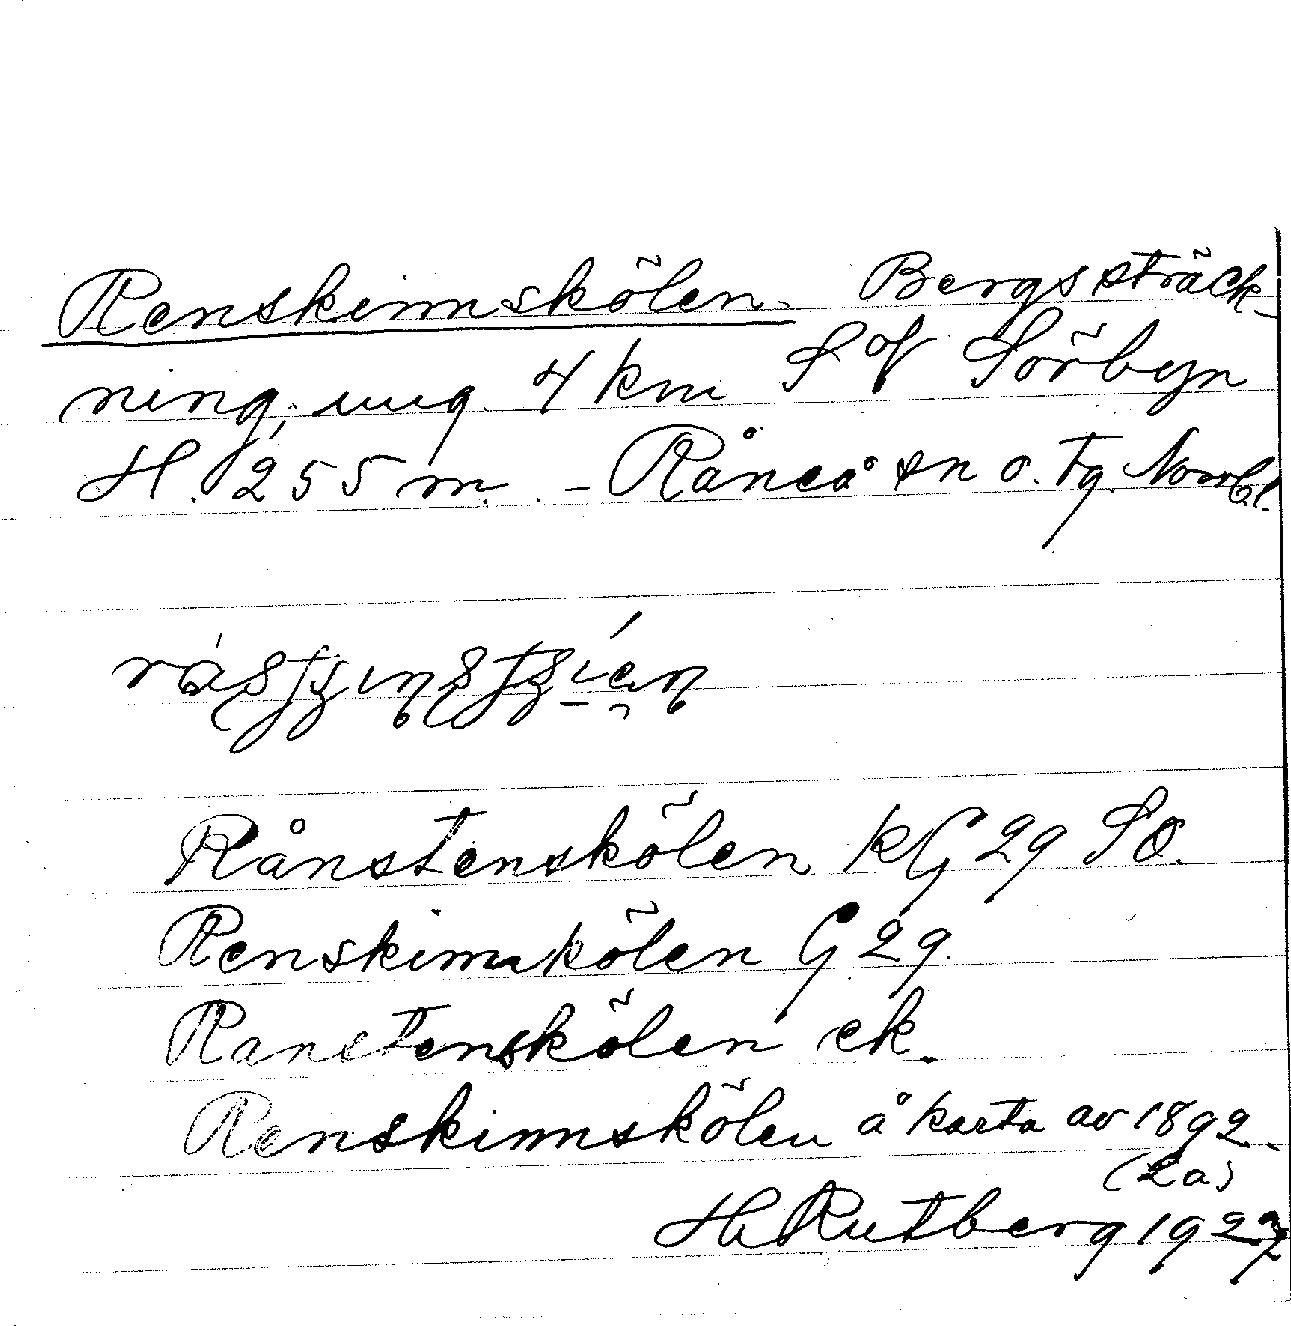 Renskinnskölen. Bergssträck-
ning, ung. 4 km S of Sörbyn
H. 255 m. - Råneå sn o. tg. Norrb.l.
Rånstenskölen kG 29 SO.
Renskinnkölen G 29.
Ranstenskölen ek.
Renskinnskölen å karta av 1892.
(La)
H. Rutberg 1927